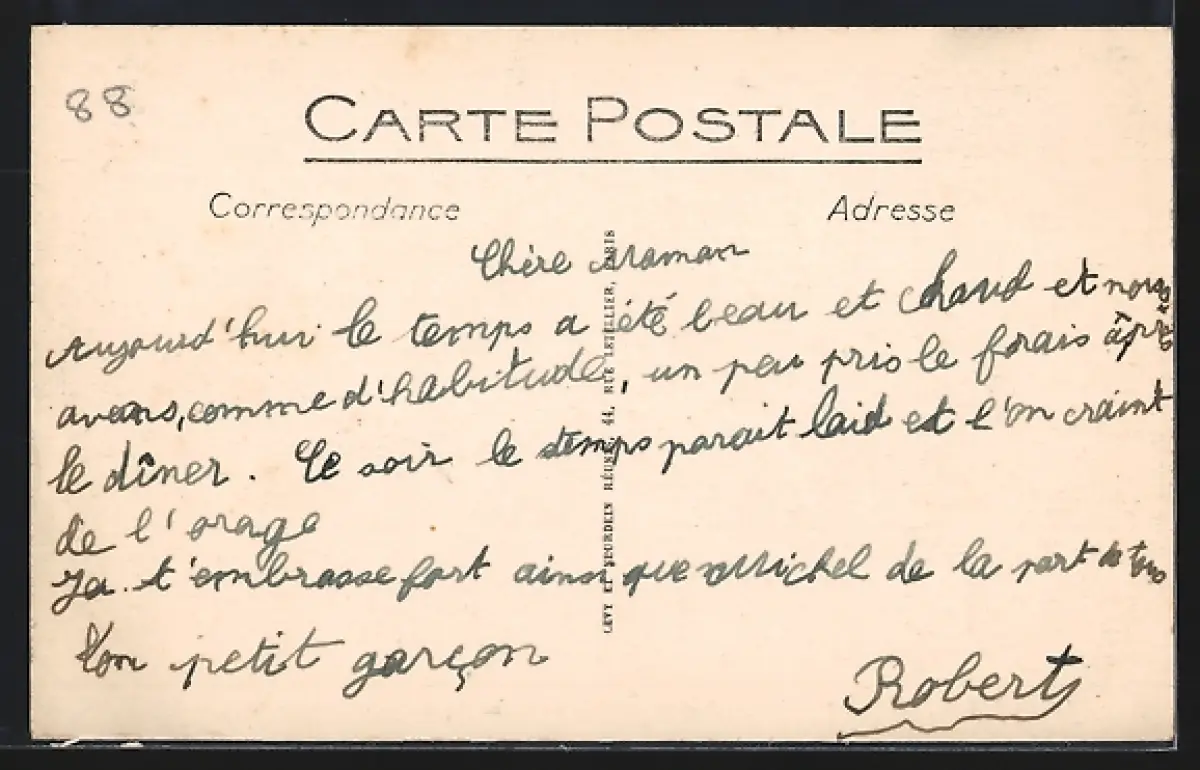 88
CARTE POSTALE
Correspondance
Adresse
Chère Maman
Aujourd'hui le temps a été beau et chaud et nous
avons, comme d'habitude, un peu pris le frais âprès
le dîner. Ce soir le temps parait laid et l'on craint
de l'orage
Je t'embrasse fort ainsi que Michel de la part de tous
Ton petit garçon
Robert
LEVY ET NEURDEIN RÉUNIS, 44, RUE LETELLIER, PARIS